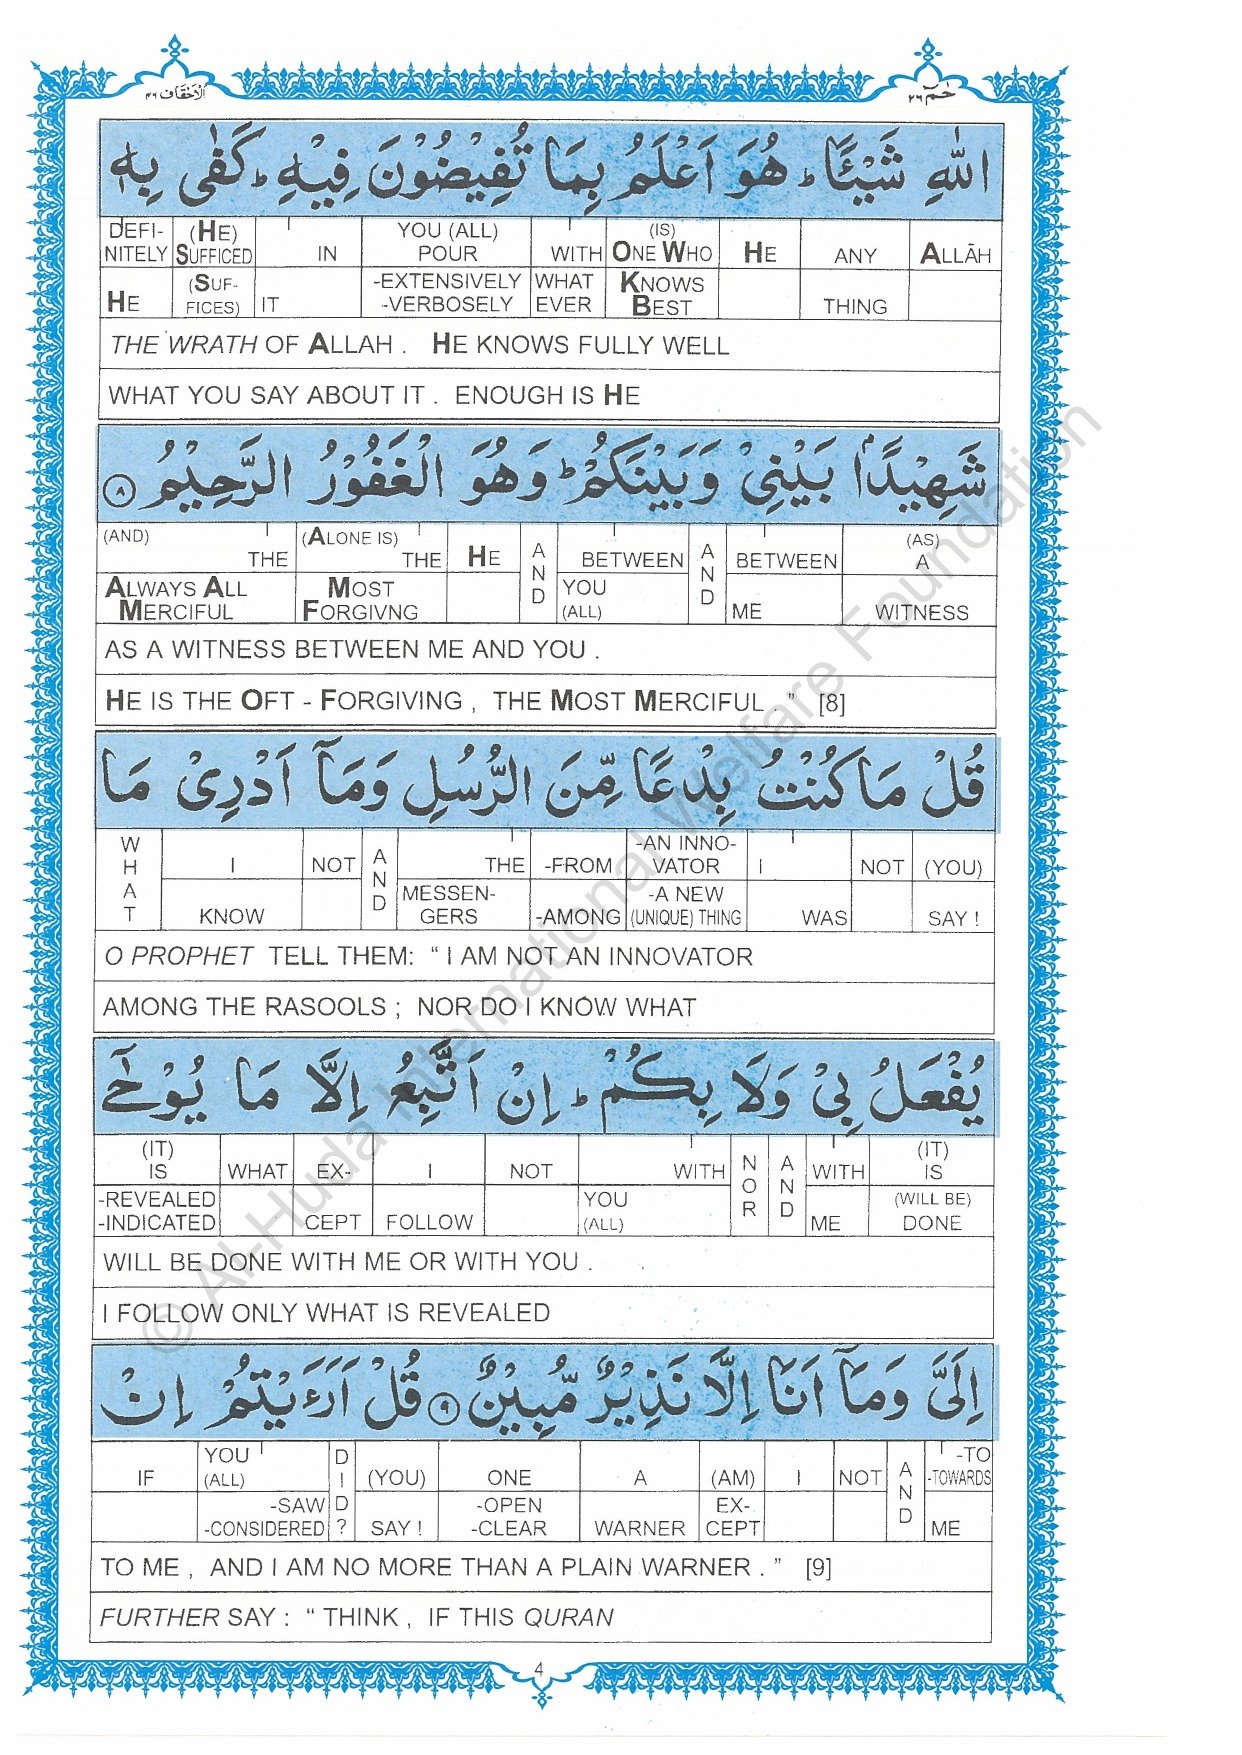 الاحقاف ٤٦
حٰمٓ ٢٦
اللّٰهِ شَيْـًٔا ؕ هُوَ اَعْلَمُ بِمَا تُفِيْضُوْنَ فِيْهِ ؕ كَفٰى بِهٖ
DEFI- (HE) IN YOU (ALL) WITH (IS) HE ANY ALLĀH
NITELY SUFFICED POUR ONE WHO
HE (SUF- IT -EXTENSIVELY WHAT KNOWS THING
FICES) -VERBOSELY EVER BEST
THE WRATH OF ALLAH . HE KNOWS FULLY WELL
WHAT YOU SAY ABOUT IT . ENOUGH IS HE
شَهِيْدًاۢ بَيْنِيْ وَبَيْنَكُمْ ؕ وَهُوَ الْغَفُوْرُ الرَّحِيْمُ ٨
(AND) THE (ALONE IS) THE HE AND BETWEEN AND BETWEEN (AS) A
ALWAYS ALL MOST YOU ME WITNESS
MERCIFUL FORGIVNG (ALL)
AS A WITNESS BETWEEN ME AND YOU .
HE IS THE OFT - FORGIVING , THE MOST MERCIFUL . ” [8]
قُلْ مَا كُنْتُ بِدْعًا مِّنَ الرُّسُلِ وَمَاۤ اَدْرِيْ مَا
WHAT I NOT AND THE -FROM -AN INNO- I NOT (YOU)
VATOR
KNOW MESSEN- -AMONG -A NEW WAS SAY !
GERS (UNIQUE) THING
O PROPHET TELL THEM: “ I AM NOT AN INNOVATOR
AMONG THE RASOOLS ; NOR DO I KNOW WHAT
يُفْعَلُ بِيْ وَلَا بِكُمْ ؕ اِنْ اَتَّبِعُ اِلَّا مَا يُوْحٰۤى
(IT) WHAT EX- I NOT WITH NOR AND WITH (IT)
IS IS
-REVEALED CEPT FOLLOW YOU ME (WILL BE)
-INDICATED (ALL) DONE
WILL BE DONE WITH ME OR WITH YOU .
I FOLLOW ONLY WHAT IS REVEALED
اِلَيَّ وَمَاۤ اَنَا اِلَّا نَذِيْرٌ مُّبِيْنٌ ٩ قُلْ اَرَءَيْتُمْ اِنْ
IF YOU DID? (YOU) ONE A (AM) I NOT AND -TO
(ALL) -TOWARDS
-SAW SAY ! -OPEN WARNER EX- ME
-CONSIDERED -CLEAR CEPT
TO ME , AND I AM NO MORE THAN A PLAIN WARNER . ” [9]
FURTHER SAY : “ THINK , IF THIS QURAN
4
© Al-Huda International Welfare Foundation